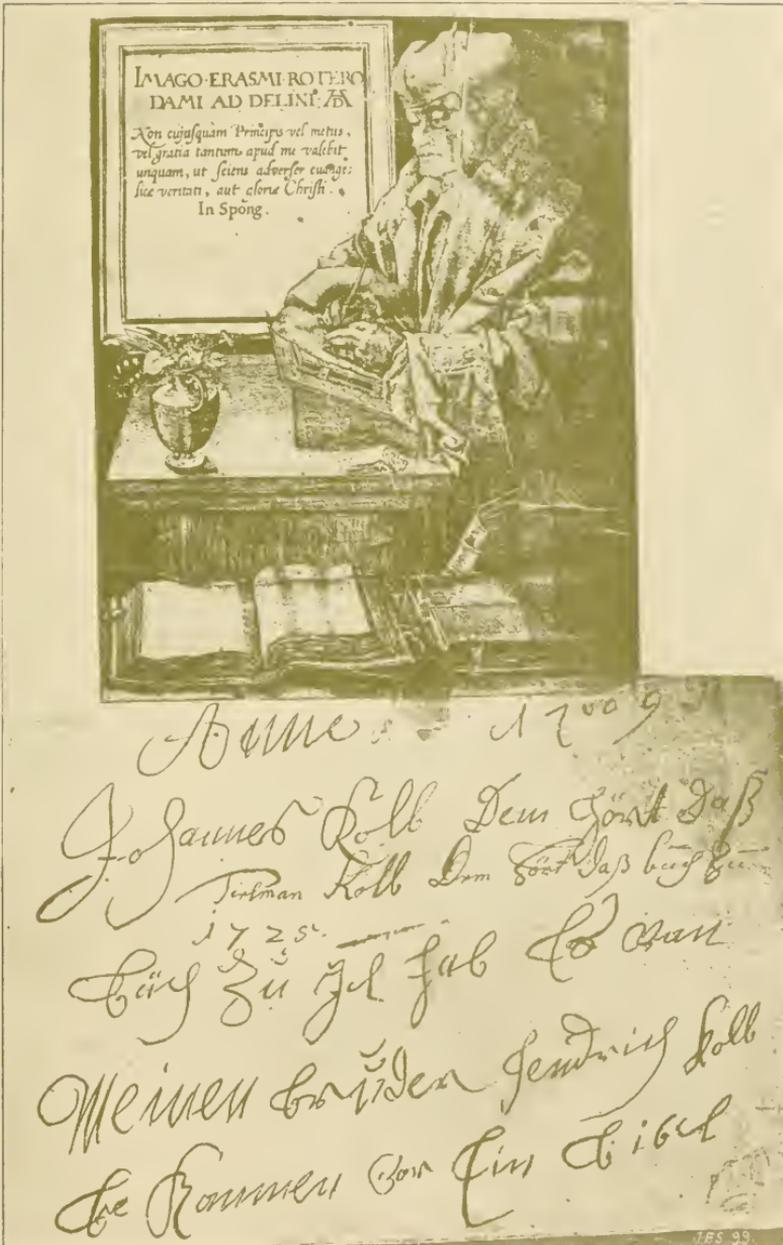 IMAGO·ERASMI·ROTERO
DAMI AD DELINI: AD
Non cujusquam Principis vel metus,
vel gratia tantum apud me valebit
unquam, ut sciens adverser euange:
licæ veritati, aut gloriæ Christi.
In Spong.
Anno 1709
Johannes Kolb Dem hört Daß
Tielman Kolb Dem hört Daß buch zu
1725
Büch Zu Ich hab Es van
Meinen brüder Hendrich Kolb
be kommen vor Ein Bibel
J.F.S. 99.